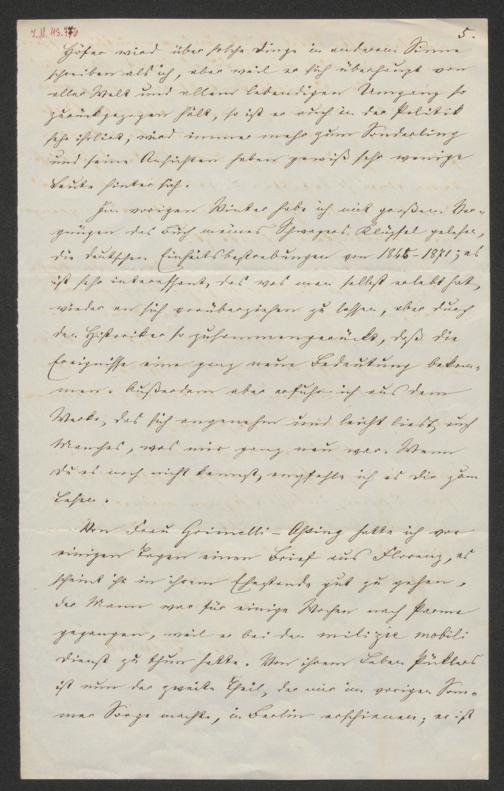 I.N. 115.770
5.
Höfer wird über solche Dinge in anderem Sinne
schreiben als ich, aber weil er sich überhaupt von
aller Welt und allem lebendigen Umgang so
zurückgezogen hält, so ist er auch in der Politik
sehr isolirt, wird immer mehr zum Sonderling
und seine Ansichten haben gewiß sehr wenige
Leute hinter sich.
Im vorigen Winter habe ich mit großem Ver-
gnügen das Buch meines Schwagers Klüpfel gelesen,
die deutschen Einheitsbestrebungen von 1848-1871; es
ist sehr interessant, das was man selbst erlebt hat,
wieder an sich vorüberziehen zu lassen, aber durch
den Historiker so zusammengerückt, daß die
Ereignisse eine ganz neue Bedeutung bekom-
men. Außerdem aber erfuhr ich aus dem
Werke, das sich angenehm und leicht liest, auch
Manches, was mir ganz neu war. Wenn
du es noch nicht kennst, empfehle ich es dir zum
Lesen.
Von Frau Grimelli-Assing hatte ich vor
einigen Tagen einen Brief aus Florenz, es
scheint ihr in ihrem Ehestande gut zu gehen,
der Mann war für einige Wochen nach Parma
gegangen, weil er bei den milizie mobili
Dienst zu thun hatte. Von ihrem Leben Pücklers
ist nun der zweite Theil, der mir im vorigen Som-
mer Sorge machte, in Berlin erschienen; er ist